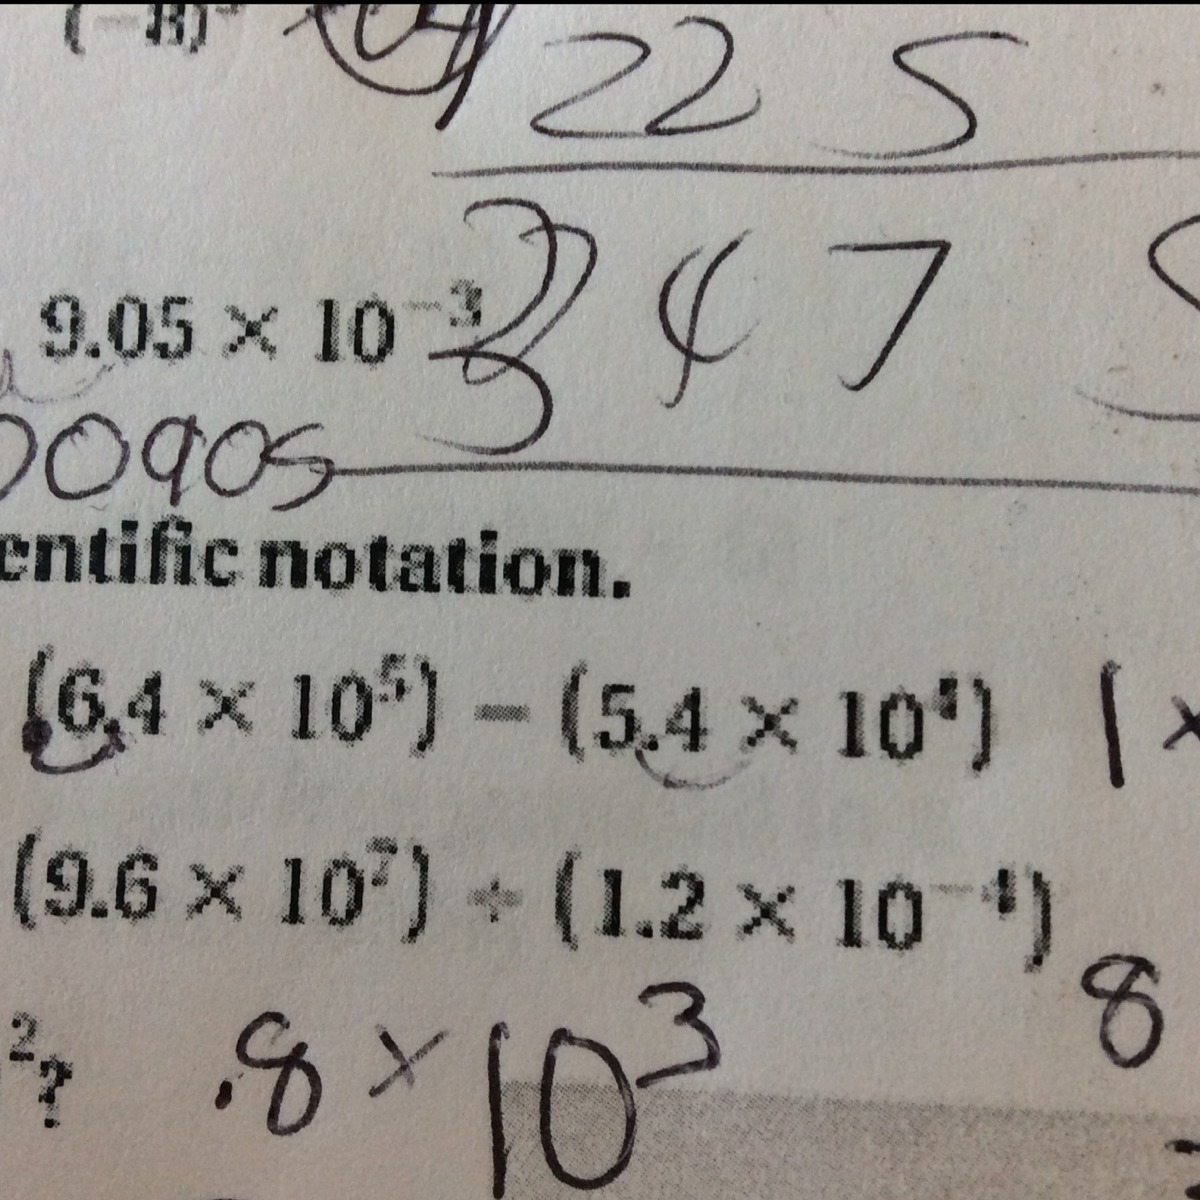 22 5
9.05 × 10⁻³
3 4 7
00905
entific notation.
(6.4 × 10⁵) − (5.4 × 10⁴) 1 ×
(9.6 × 10⁷) ÷ (1.2 × 10⁻⁴)
8
²? .8 × 10³